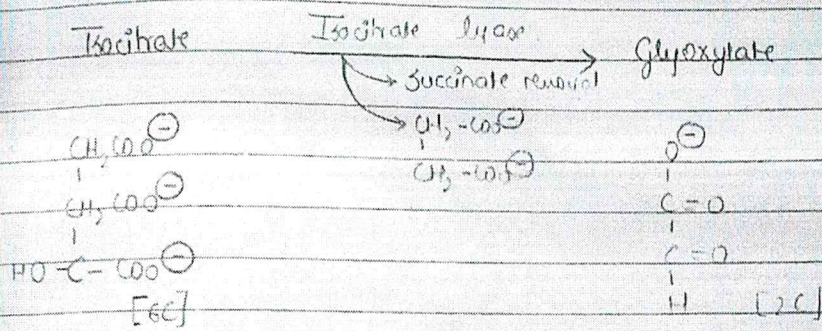 Isocitrate Isocitrate lyase Glyoxylate
Succinate removal
CH2-COO⊖
CH2-COO⊖
CH2COO⊖
CH2COO⊖
HO-C-COO⊖
[6C]
O⊖
C=O
C=O
H [2C]